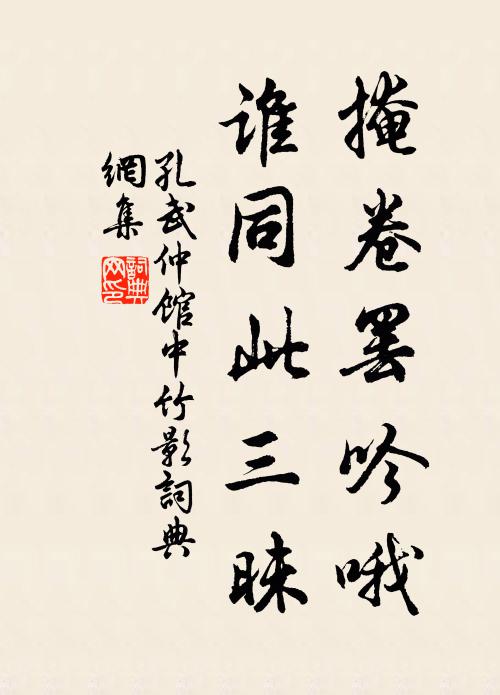 掩卷罢吟哦
谁同此三昧
孔武仲馆中竹影詞典
網集
詞典網印